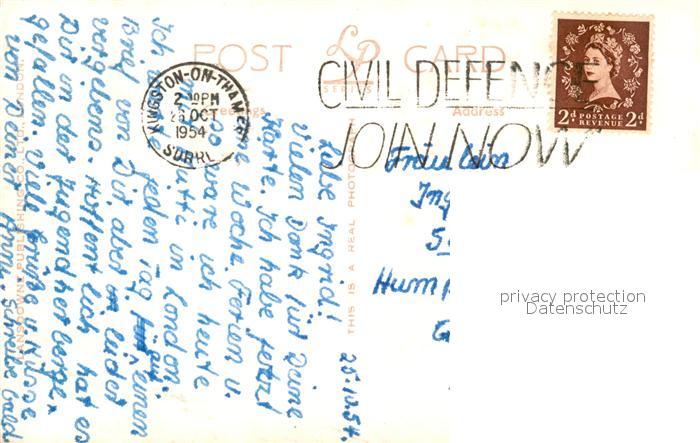 POST LP CARD
SERIES
KINGSTON-ON-THAMES
2 30PM
26 OCT
1954
SURREY
CIVIL DEFENCE
JOIN NOW
2d POSTAGE REVENUE 2d
Address
THIS IS A REAL PHOTO
LANSDOWNE PUBLISHING CO., LTD., LONDON.
25.10.54.
Liebe Ingrid!
Vielen Dank für Deine
Karte. Ich habe jetzt
eine Woche Ferien u.
so ware ich heute
mit Mutti in London.
Ich jeden Tag auf einen
Brief von Dir aber leider
vergebens. Hoffentlich hat es
Dir in der Jugendherberge
gefallen. Viele Grüße u. Küsse
von Deiner Brun. Schreibe bald
Fräulein
Ing
S
Hump
G
privacy protection
Datenschutz